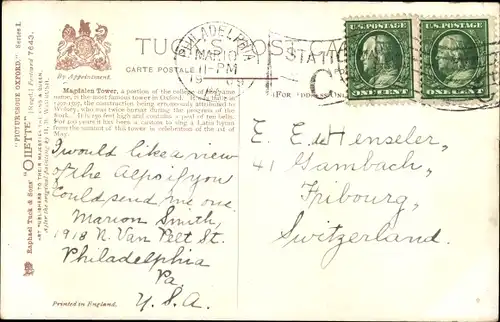 TUCK'S POST CARD
CARTE POSTALE
By Appointment.
PHILADELPHIA
MAR 10
11-PM
STATION
U.S. POSTAGE
U.S. POSTAGE
ONE CENT
ONE CENT
Raphael Tuck & Sons' "OILETTE" [Regd.] Postcard 7643.
"PICTURESQUE OXFORD." Series I.
Magdalen Tower, a portion of the college of the same
name, is the most famous tower in Oxford. Built in
the construction being erroneously attributed to
it was during the time of
progress of the work. It is 150 feet high and contains a peal of ten bells.
For 200 years it has been the custom to sing a Latin hymn
from the summit of this tower in celebration of the 1st of
May.
I would like a view
of the Alps if you
Could send me one.
Marion Smith,
1918 N. Van Pelt St.
Philadelphia
Pa.
U.S.A.
E. E. Henseler,
41 Gambach,
Fribourg,
Switzerland.
Printed in England.